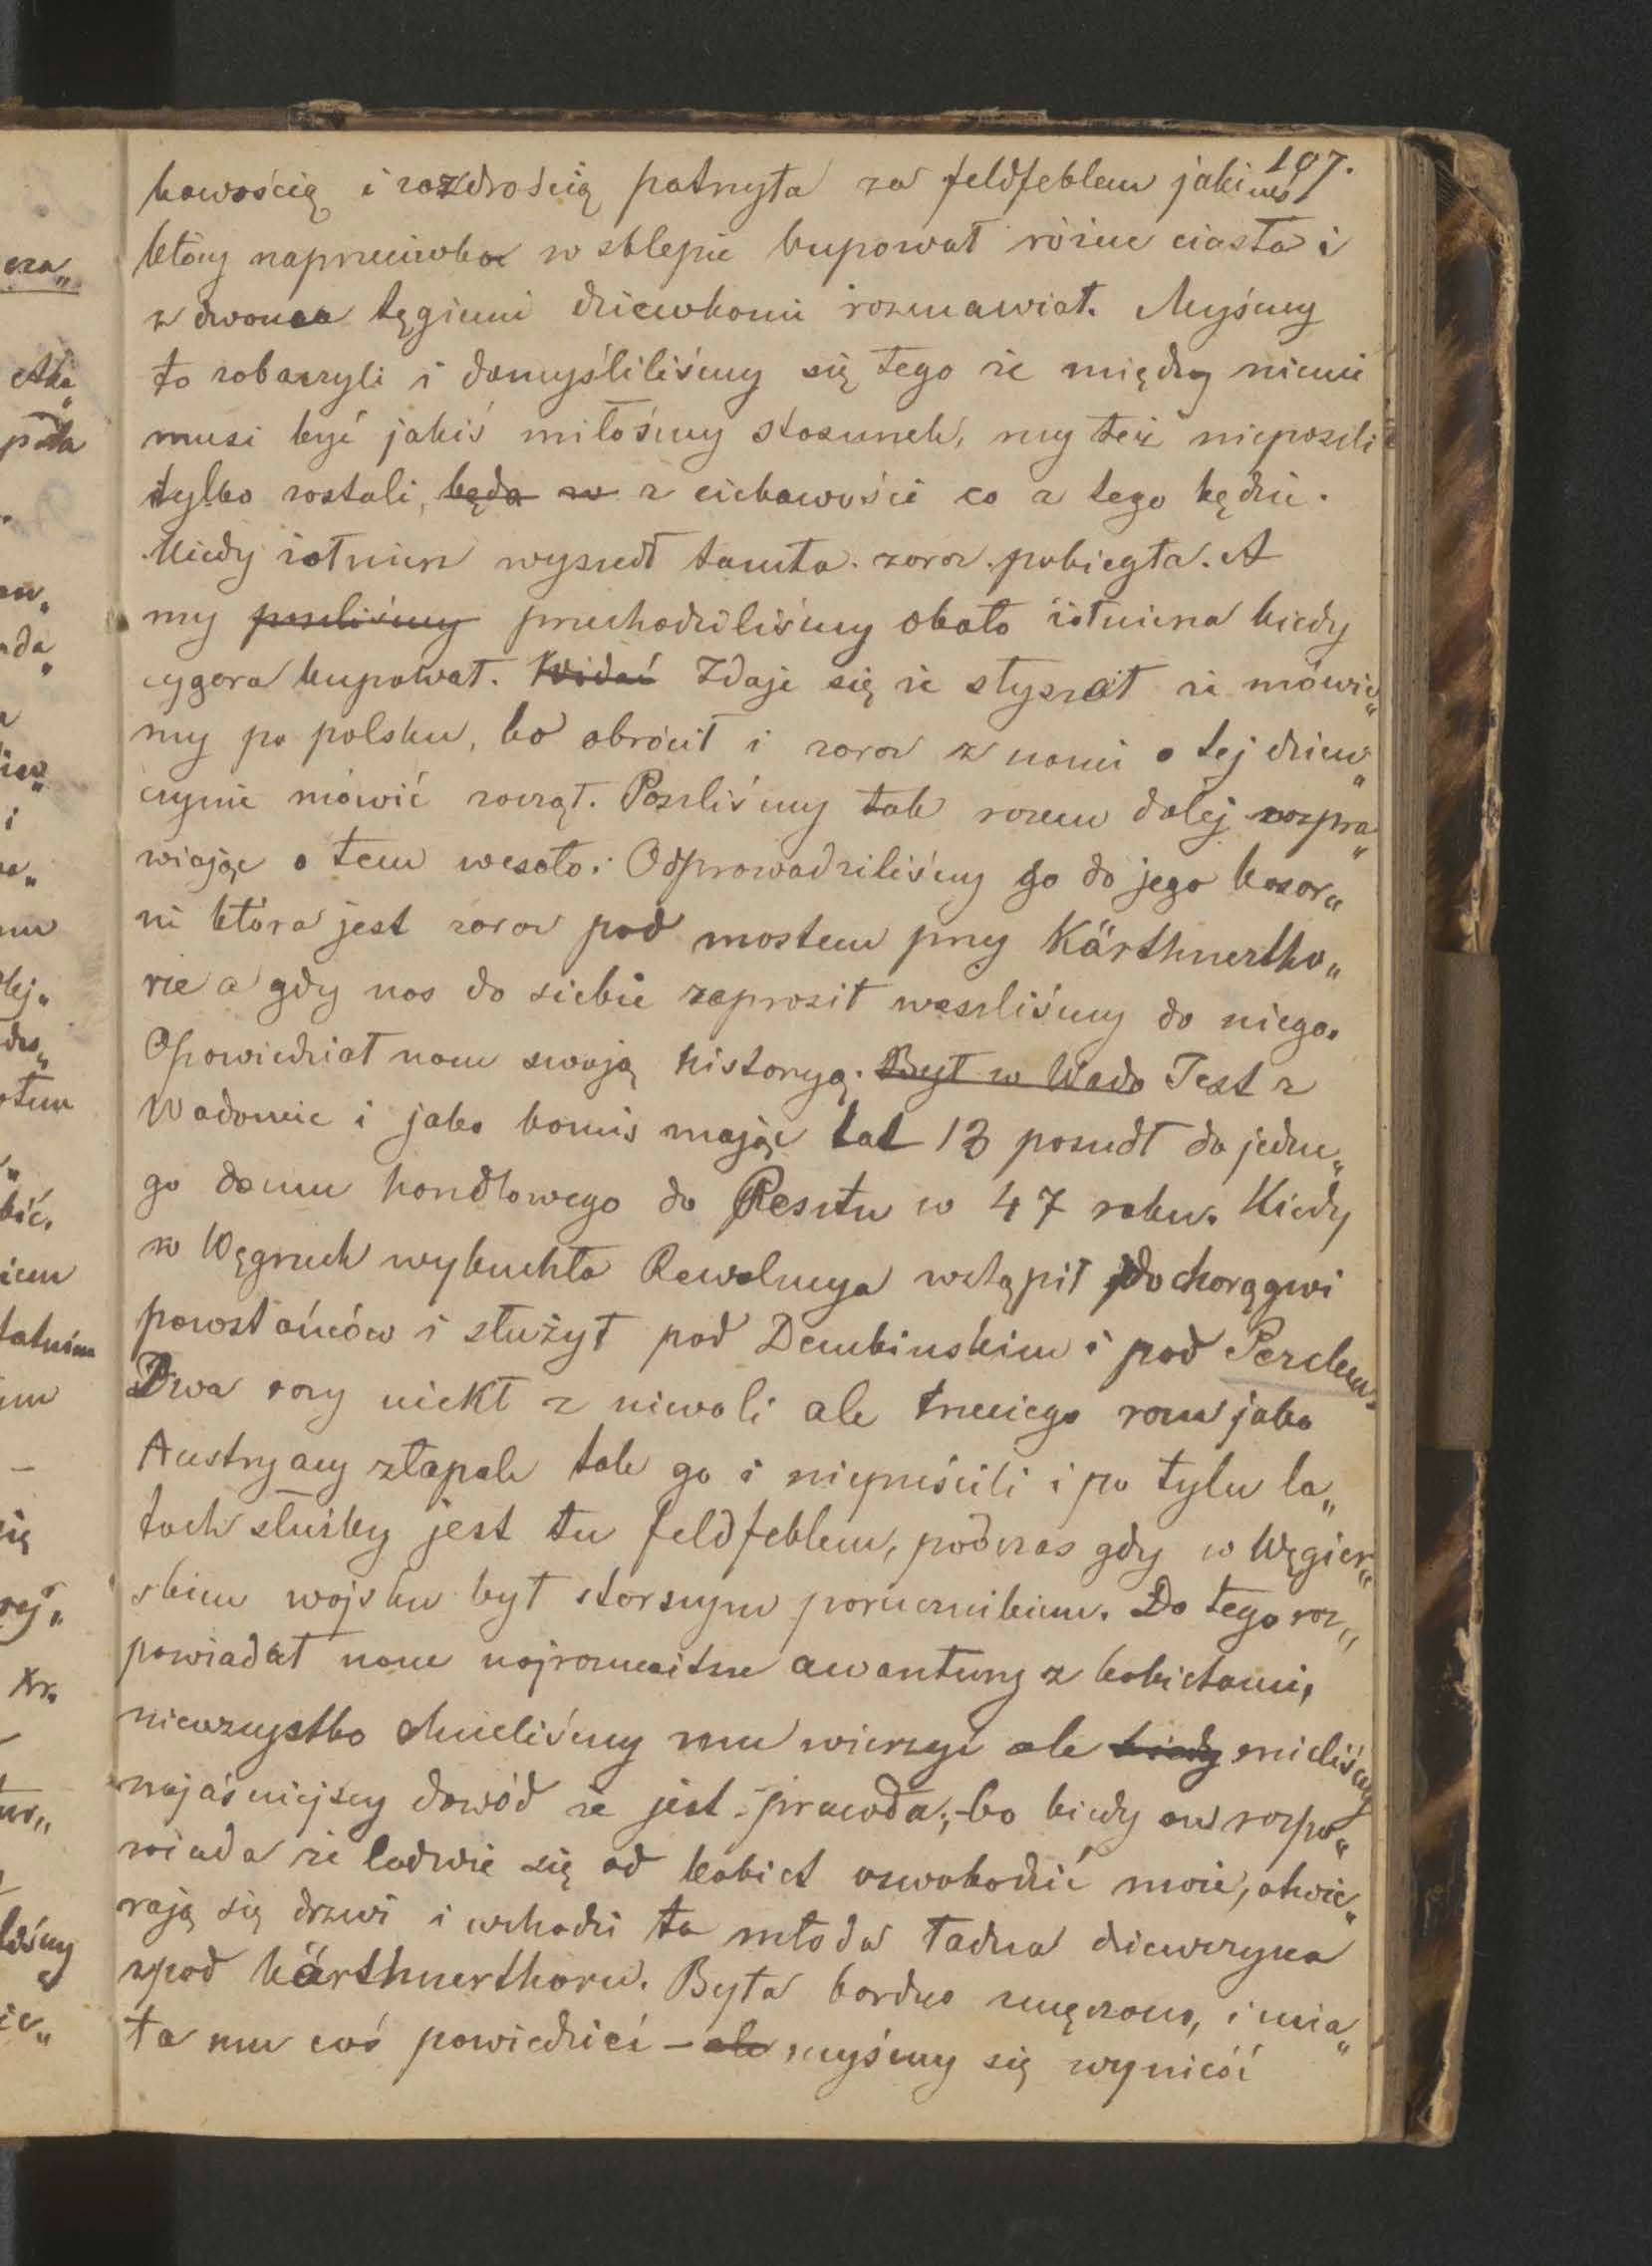 197.
kawością i zazdrością patrzyła za feldfeblem jakimś
który naprzeciwko w sklepie kupował różne ciasta i
z dwoma tęgiemi dziewkami rozmawiał. Myśmy
to zobaczyli i domyśliliśmy się tego że między niemi
musi być jakiś miłosny stosunek, my też nieposzli
tylko zostali, będą z ciekawości co z tego będzie.
Kiedy żołnierz wyszedł tamta zaraz pobiegła. A
my poszliśmy przechodziliśmy obok żołnierza kiedy
cygara kupował. Widać Zdaje się że słyszał że mówie„
my po polsku, bo obrócił i zaraz z nami o tej dziew„
czynie mówić zaczął. Poszliśmy tak razem dalej rozpra„
wiając o tem wesoło. Odprowadziliśmy go do jego kasar„
ni która jest zaraz pod mostem przy Kärthnertho„
rze a gdy nas do siebie zaprosił weszliśmy do niego.
Opowiedział nam swoją historyą. Był w Wado Jest z
Wadowic i jako komis mając lat 13 poszedł do jedne„
go domu handlowego do Pesztu w 47 roku. Kiedy
w Węgrzech wybuchła Rewolucya wstąpił do chorągwi
powstańców i służył pod Dembinskim i pod Perclem.
Dwa razy uciekł z niewoli ale trzeciego razu jako
Austryacy złapali tak go i niepuścili i po tylu la„
tach służby jest tu feldfeblem, podczas gdy w Węgier„
skim wojsku był starszym porucznikiem. Do tego roz„
powiadał nam najrozmaitsze awantury z kobietami,
niewszystko chcieliśmy mu wierzyć ale kiedy mieliśmy
najaśniejszy dowód że jest prawda, bo kiedy on rozpo„
wiada że ledwie się od kobiet oswobodzić może, otwie„
rają się drzwi i wchodzi ta młoda ładna dziewczyna
zpod kärthnerthoru. Była bardzo zmęczona, i mia„
ła mu coś powiedzieć – ale myśmy się wynieść